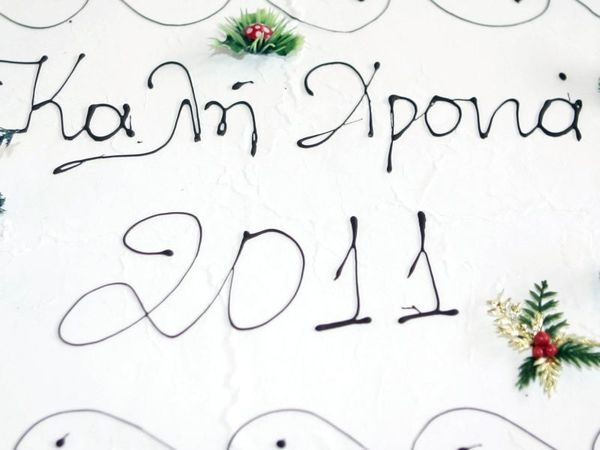 Καλή Χρονιά
2011